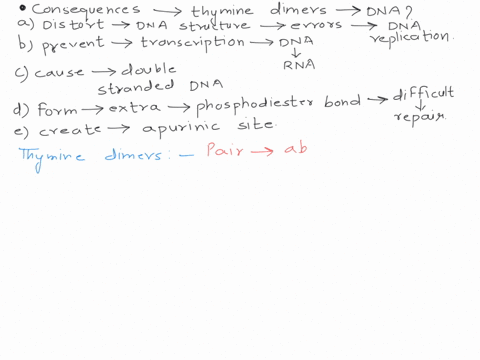 • Consequences → thymine dimers → DNA?
a) Distort → DNA structure → errors → DNA replication.
b) prevent → transcription → DNA ↓ RNA
c) cause → double stranded DNA
d) form → extra → phosphodiester bond → difficult ↓ repair.
e) create → apurinic site.
Thymine dimers: – Pair → ab